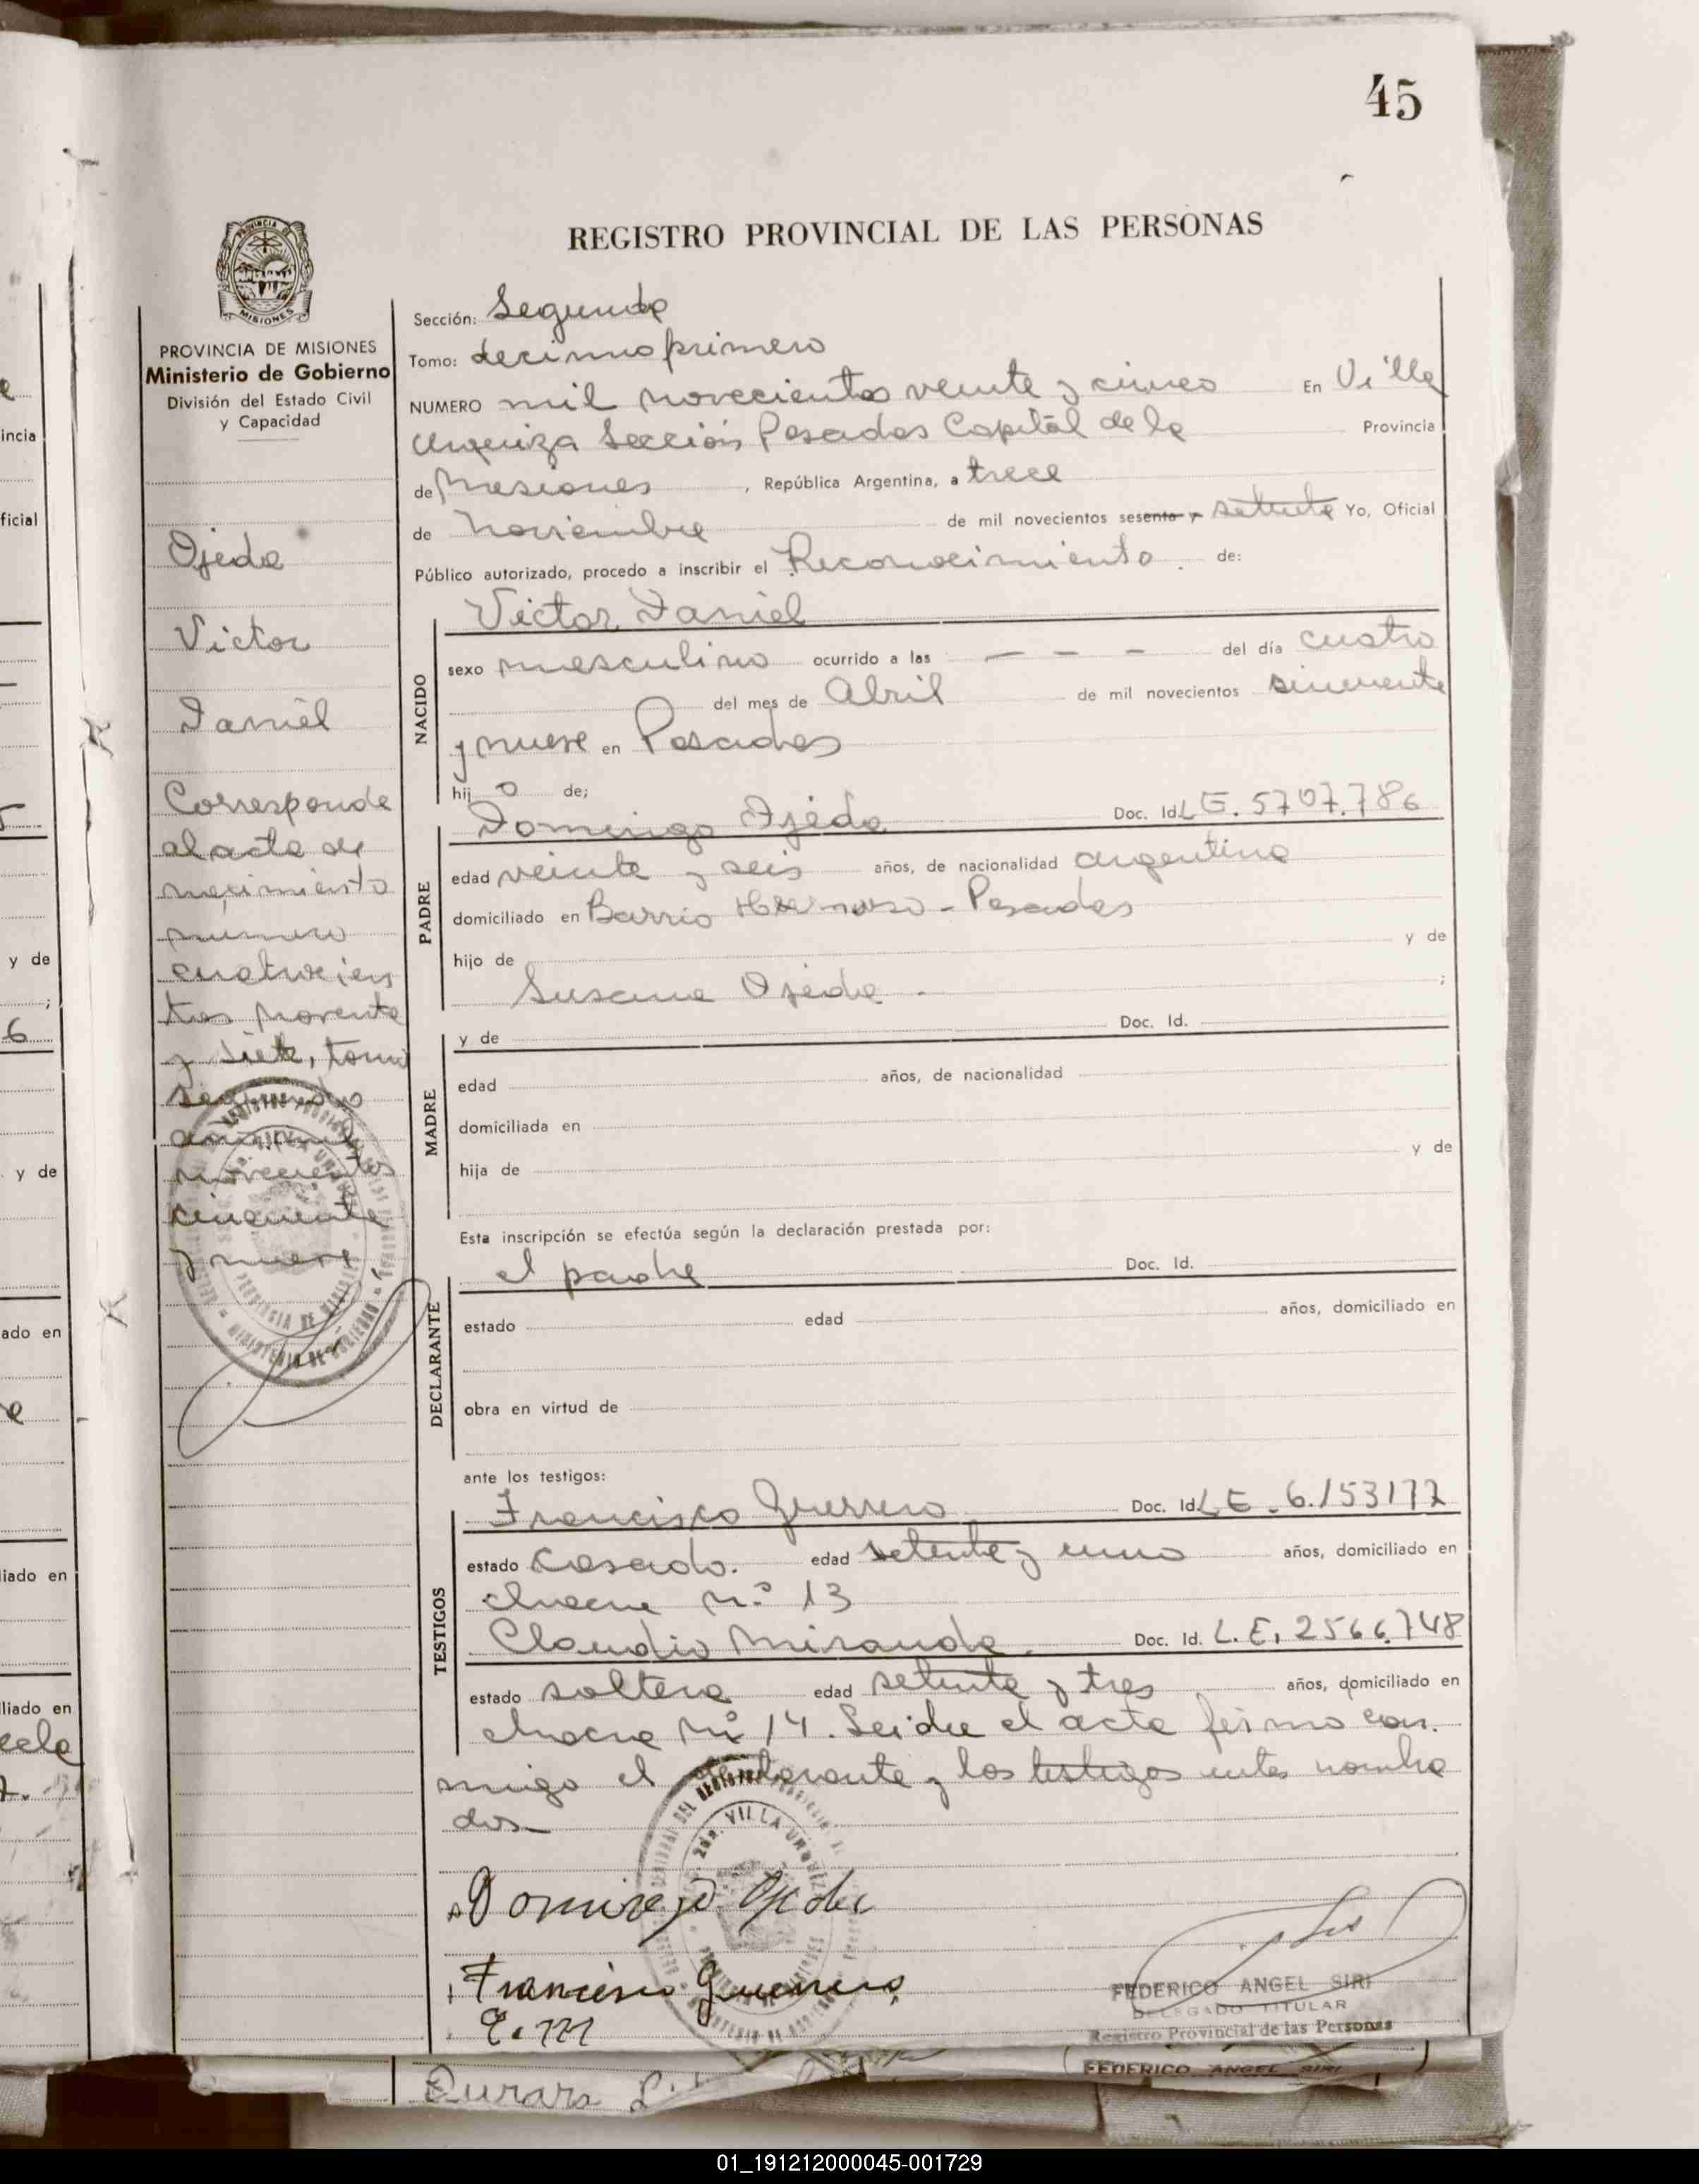 45
REGISTRO PROVINCIAL DE LAS PERSONAS
MISIONES
PROVINCIA DE MISIONES
Ministerio de Gobierno
División del Estado Civil
y Capacidad
Ojeda
Victor
Daniel
Corresponde
al acta de
nacimiento
numero
cuatrocien
tos noventa
y siete, tomo
segundo
año mil
novecientos
cincuenta
y nueve.
Sección: Segunda
Tomo: decimo primero
NUMERO mil novecientos veinte y cinco En Villa
Urquiza Sección Posadas Capital de la Provincia
de Misiones, República Argentina, a trece
de Noviembre de mil novecientos sesenta y setenta Yo, Oficial
Público autorizado, procedo a inscribir el Reconocimiento. de:
Victor Daniel
NACIDO
sexo masculino ocurrido a las — — — del día cuatro
del mes de Abril de mil novecientos sincuenta
y nueve en Posadas
hijo de;
PADRE
Domingo Ojeda Doc. Id. L E. 5707.786
edad veinte y seis años, de nacionalidad argentina
domiciliado en Barrio Hermoso - Posadas
hijo de y de
Susana Ojeda. ;
MADRE
y de Doc. Id.
edad años, de nacionalidad
domiciliada en
hija de y de
Esta inscripción se efectúa según la declaración prestada por:
DECLARANTE
el padre Doc. Id.
estado edad años, domiciliado en
obra en virtud de
ante los testigos:
TESTIGOS
Francisco Guerrero Doc. Id. L E. 6.153177
estado Casado. edad setenta y uno años, domiciliado en
chacra N.º 13
Claudio Miranda. Doc. Id. L. E. 2566.748
estado soltero edad setenta y tres años, domiciliado en
chacra Nº 14. Leida el acta firma con.
migo el declarante y los testigos antes nombra
dos—
Domingo Ojeda
Francisco Guerrero
FEDERICO ANGEL SIRI
DELEGADO TITULAR
Registro Provincial de las Personas
FEDERICO ANGEL SIRI
01_191212000045-001729